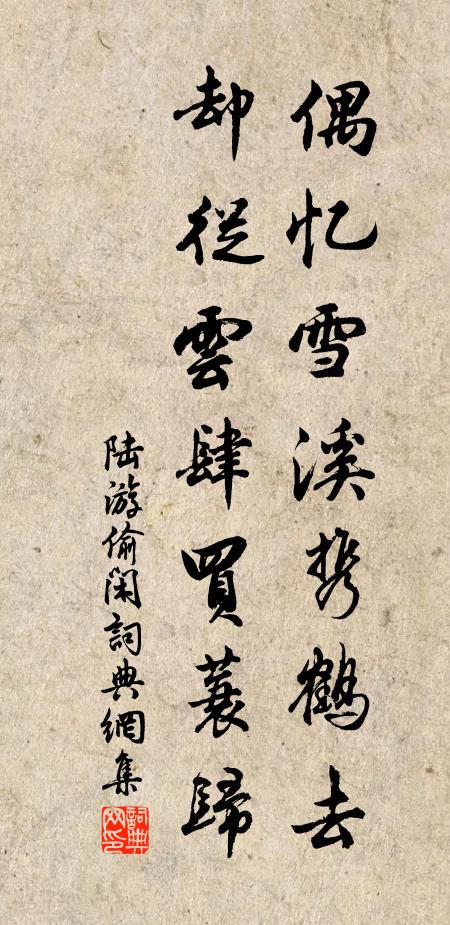 偶忆雪溪携鹤去
却従雲肆買蓑歸
陆游偷闲詞典網集
詞典网印